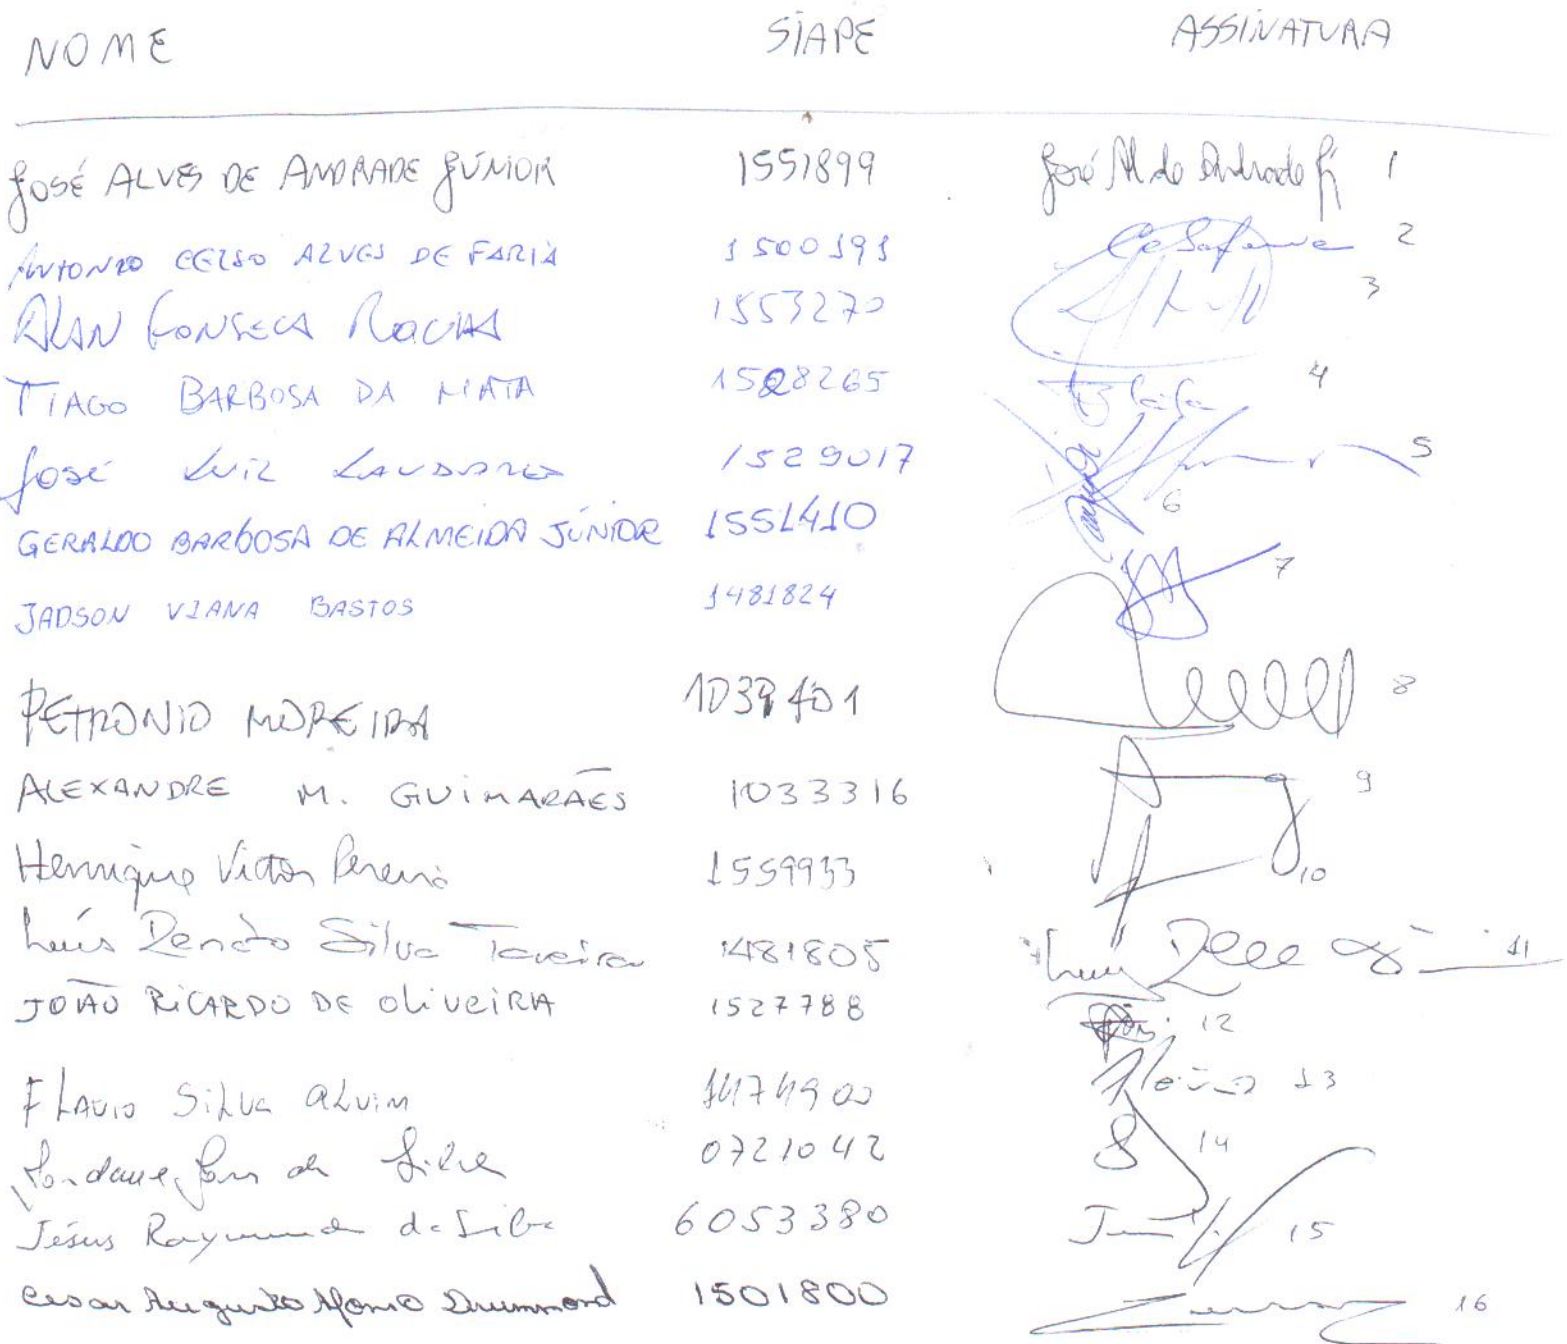 NOME SIAPE ASSINATURA
JOSÉ ALVES DE ANDRADE JÚNIOR 1551899 José Al de Andrade Jr 1
ANTONIO CELSO ALVES DE FARIA 1500191 2
ALAN FONSECA ROCHA 1553270 3
TIAGO BARBOSA DA MATA 1528265 4
José Luiz 1529017 5
GERALDO BARBOSA DE ALMEIDA JÚNIOR 1551410 6
JADSON VIANA BASTOS 1481824 7
PETRONIO MOREIRA 8
ALEXANDRE M. GUIMARÃES 1033316 9
Henrique Victor Pereira 1559933 10
Luís Renato Silva Taveira 1481805 Luís 11
JOÃO RICARDO DE OLIVEIRA 1527788 12
FLAVIO SILVA ALVIM 1474900 13
da Silva 0721042 14
Jésus Raymundo da Silva 6053380 15
Cesar Augusto Afonso Drummond 1501800 16